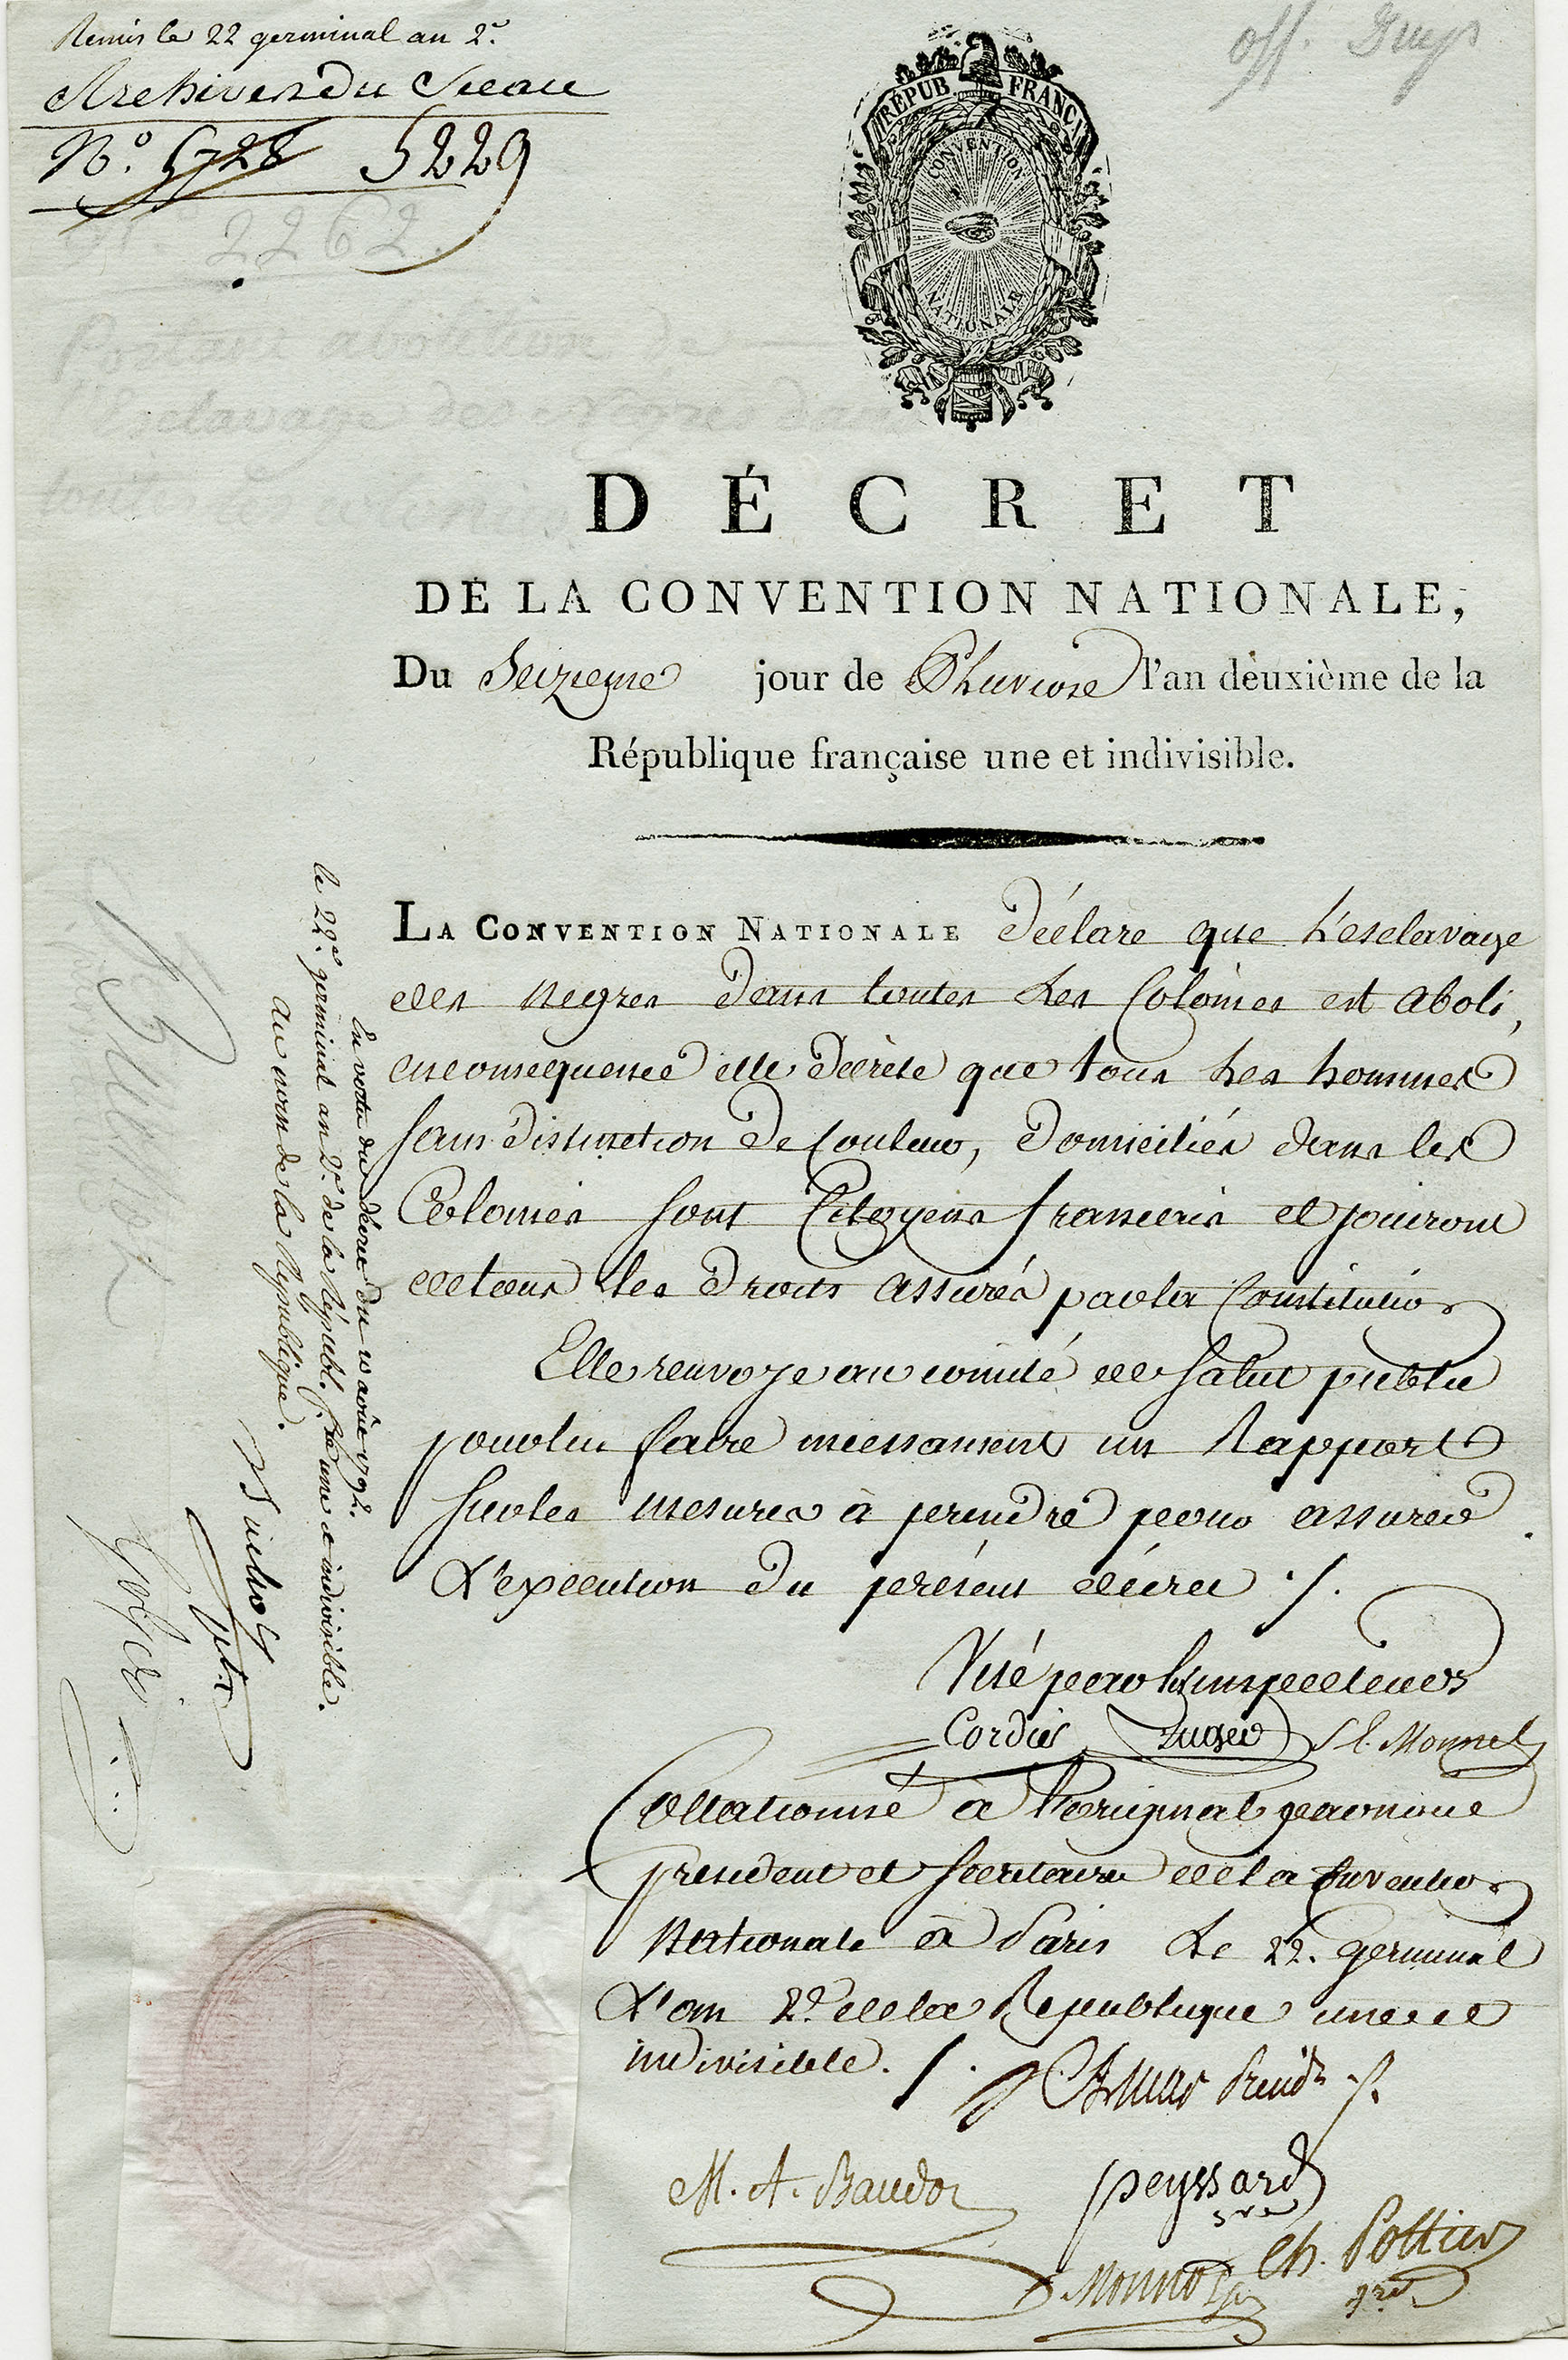 Remis le 22 germinal an 2e.
Archives du Sceau
N.o 5728 5229
2262.
off.
RÉPUB. FRANÇ.
CONVENTION
NATIONALE
DÉCRET
DE LA CONVENTION NATIONALE,
Du Seizieme jour de Pluviose l'an deuxième de la
République française une et indivisible.
LA CONVENTION NATIONALE déclare que l'esclavage
des negres dans toutes les Colonies est aboli,
en consequence elle decrete que tous les hommes
sans distinction de Couleur, domiciliés dans les
Colonies sont Citoyens francais et jouiront
de tous les droits assurés par la Constitution
Elle renvoye au comité de Salut public
pour lui faire incessament un Rapport
sur les mesures à prendre pour assurer
l'exécution du présent décret ./.
Visé par les inspecteurs
Cordier Auger S. E. Monnel
Collationné à l'original par nous
president et Secretaires de la Convention
Nationale à Paris le 22. Germinal
l'an 2e. de la Republique une et
indivisible. ./.
Amar Presidt.
M. A. Baudot Peyssard
sre
Monnot Ch. Pottier
sre
En vertu du décret du 10 août 1792.
le 22e. germinal an 2e. de la Républ. fse. une et indivisible.
Au nom de la République.